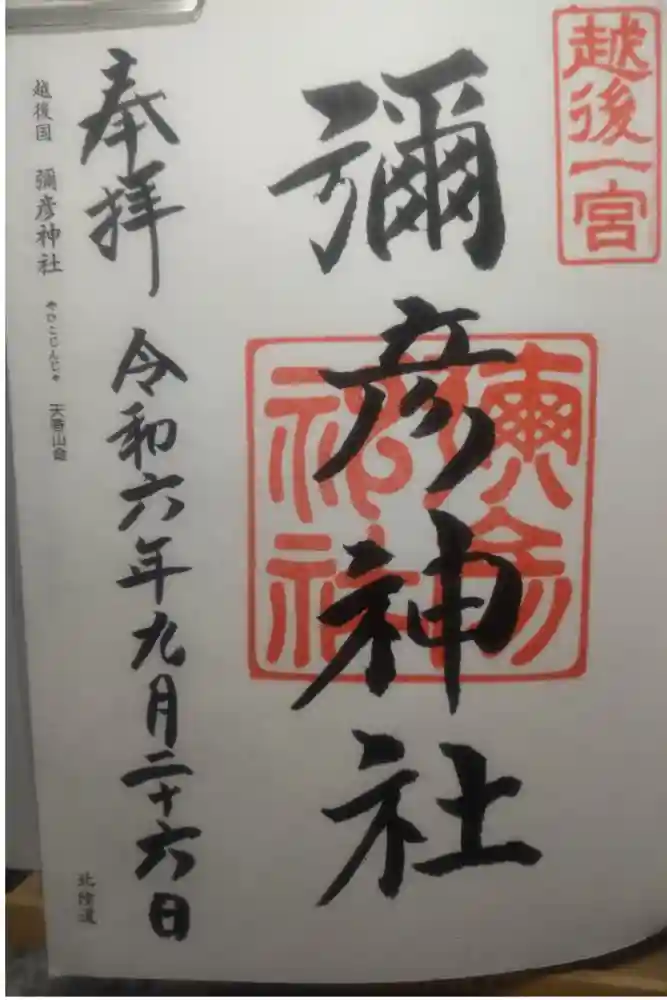 越後一宮
彌彦神社
彌彦神社
奉拝
令和六年九月二十六日
越後国 彌彦神社 やひこじんじゃ 天香山命
北陸道